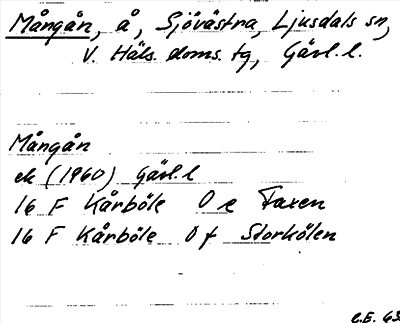 Mångån, å, Sjövästra, Ljusdals sn,
V. Häls. doms. tg, Gävl. l.
Mångån
ek (1960) Gävl. l
16 F Kårböle 0 e Faxen
16 F Kårböle 0 f Storkölen
C.E. 63